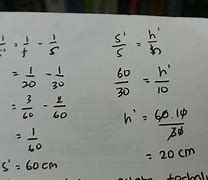 1/s' = 1/f - 1/s
= 1/20 - 1/30
= 3/60 - 2/60
= 1/60
s' = 60 cm
s'/s = h'/h
60/30 = h'/10
h' = 60.10/30
= 20 cm